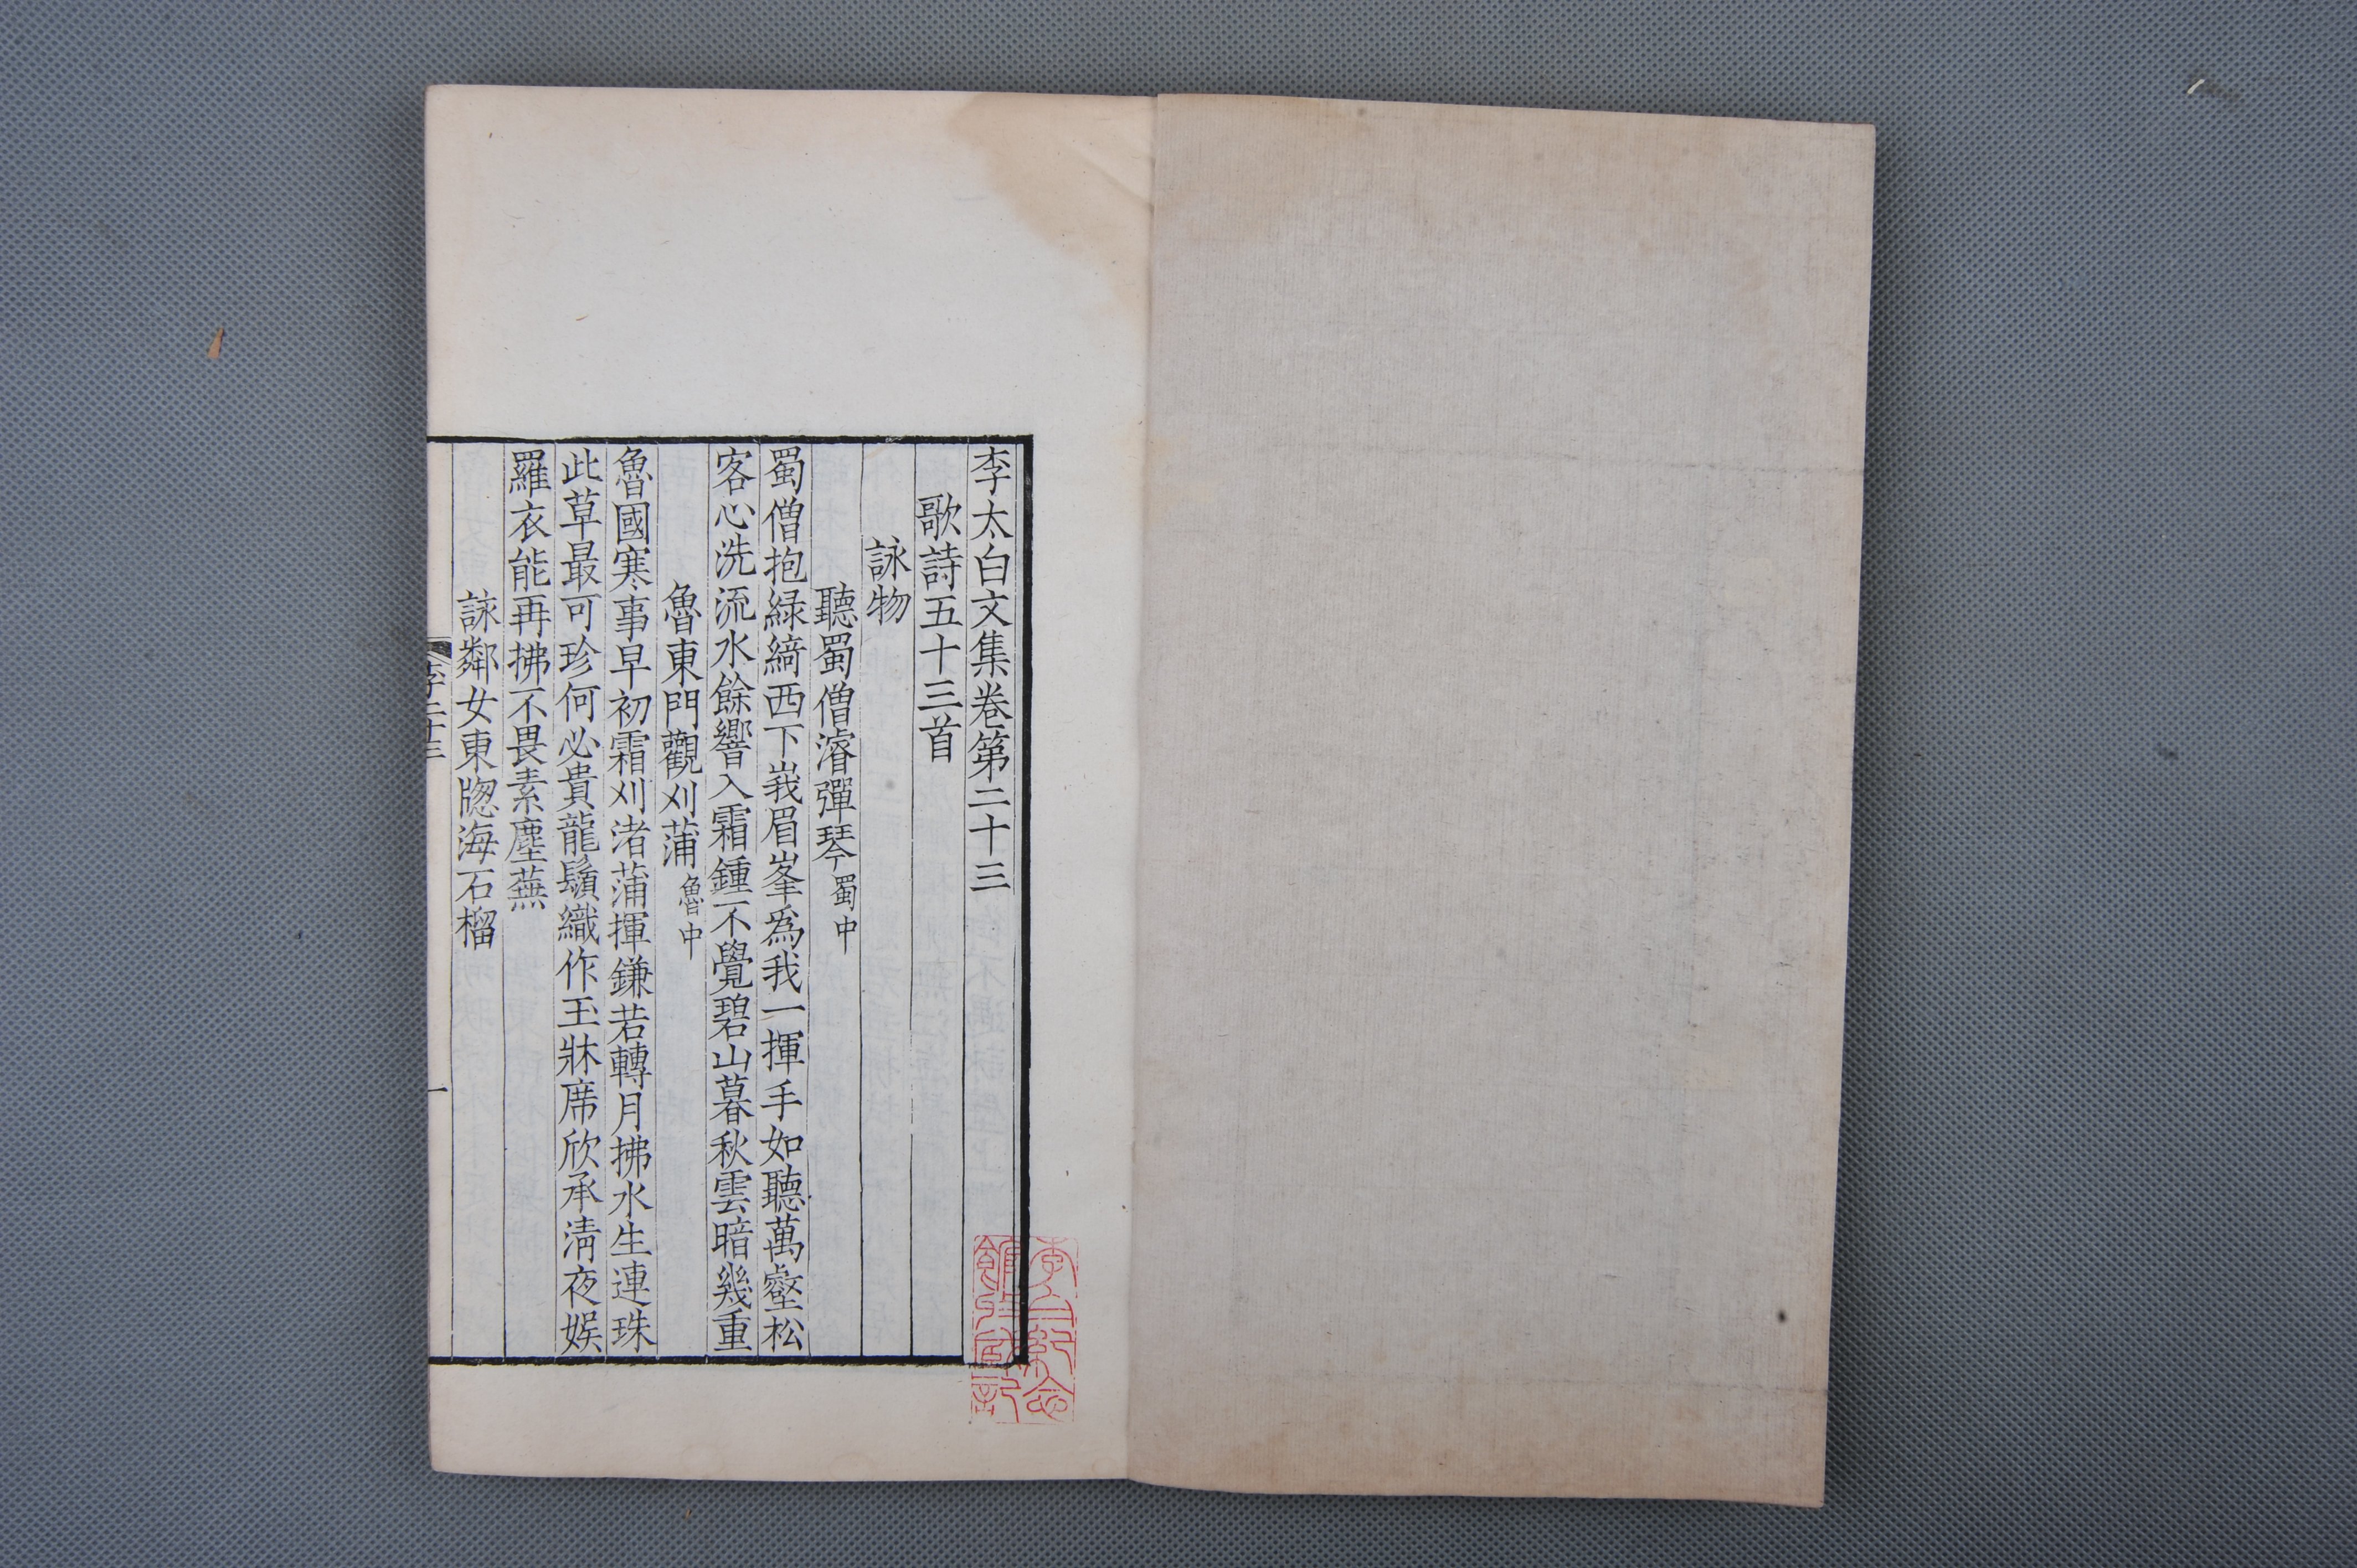 李太白文集卷第二十三
歌詩五十三首
詠物
聽蜀僧濬彈琴 蜀中
蜀僧抱綠綺西下峩眉峯爲我一揮手如聽萬壑松
客心洗流水餘響入霜鍾不覺碧山暮秋雲暗幾重
魯東門觀刈蒲 魯中
魯國寒事早初霜刈渚蒲揮鎌若轉月拂水生連珠
此草最可珍何必貴龍鬚織作玉牀席欣承清夜娛
羅衣能再拂不畏素塵蕪
詠鄰女東牎海石榴
李二十三
一
李白紀念
館
記